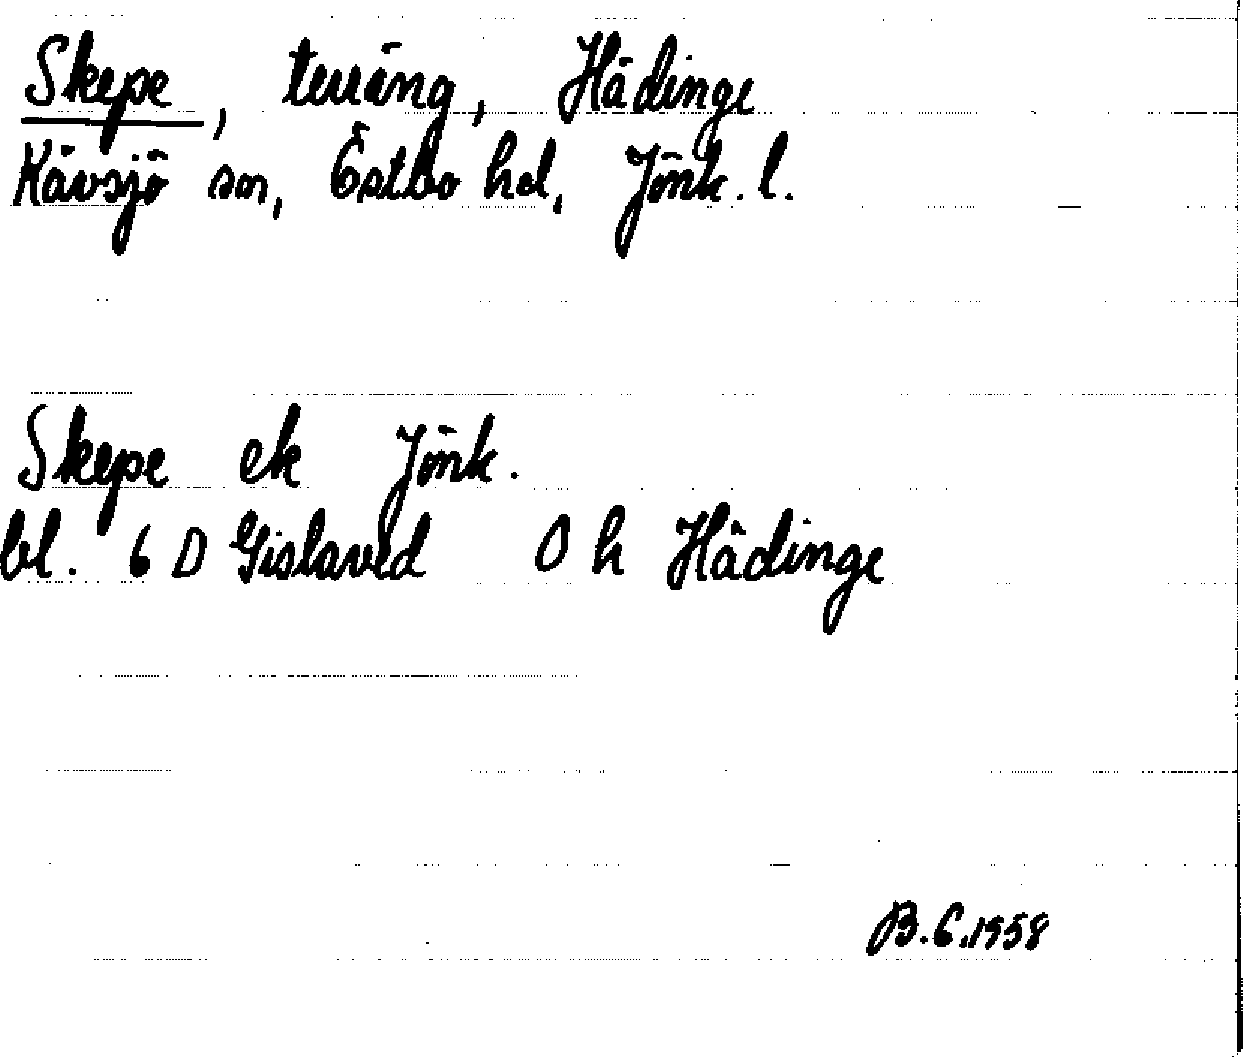 Skepe, terräng, Hädinge
Kävsjö sn, Östbo hd, Jönk. l.
Skepe ek Jönk.
bl. 6 D Gislaved 0 h Hädinge
B.G.1958